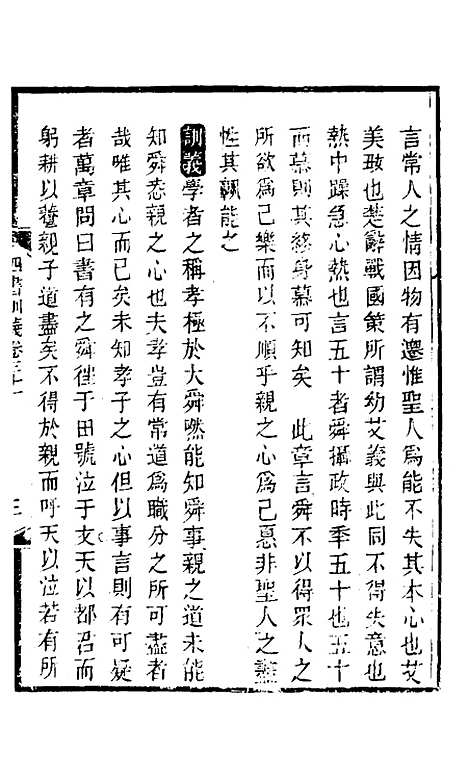 言常人之情因物有遷惟聖人爲能不失其本心也艾
美好也楚辭戰國策所謂幼艾義與此同不得失意也
熱中躁急心熱也言五十者舜攝政時年五十也五十
而慕則其終身慕可知矣　此章言舜不以得眾人之
所欲爲己樂而以不順乎親之心爲己憂非聖人之盡
性其孰能之
訓義學者之稱孝極於大舜然能知舜事親之道未能
知舜慕親之心也夫孝豈有常道爲職分之所可盡者
哉唯其心而已矣未知孝子之心但以事言則有可疑
者萬章問曰書有之舜往于田號泣于旻天以都君而
躬耕以養親子道盡矣不得於親而呼天以泣若有所
四書訓義卷三十
三